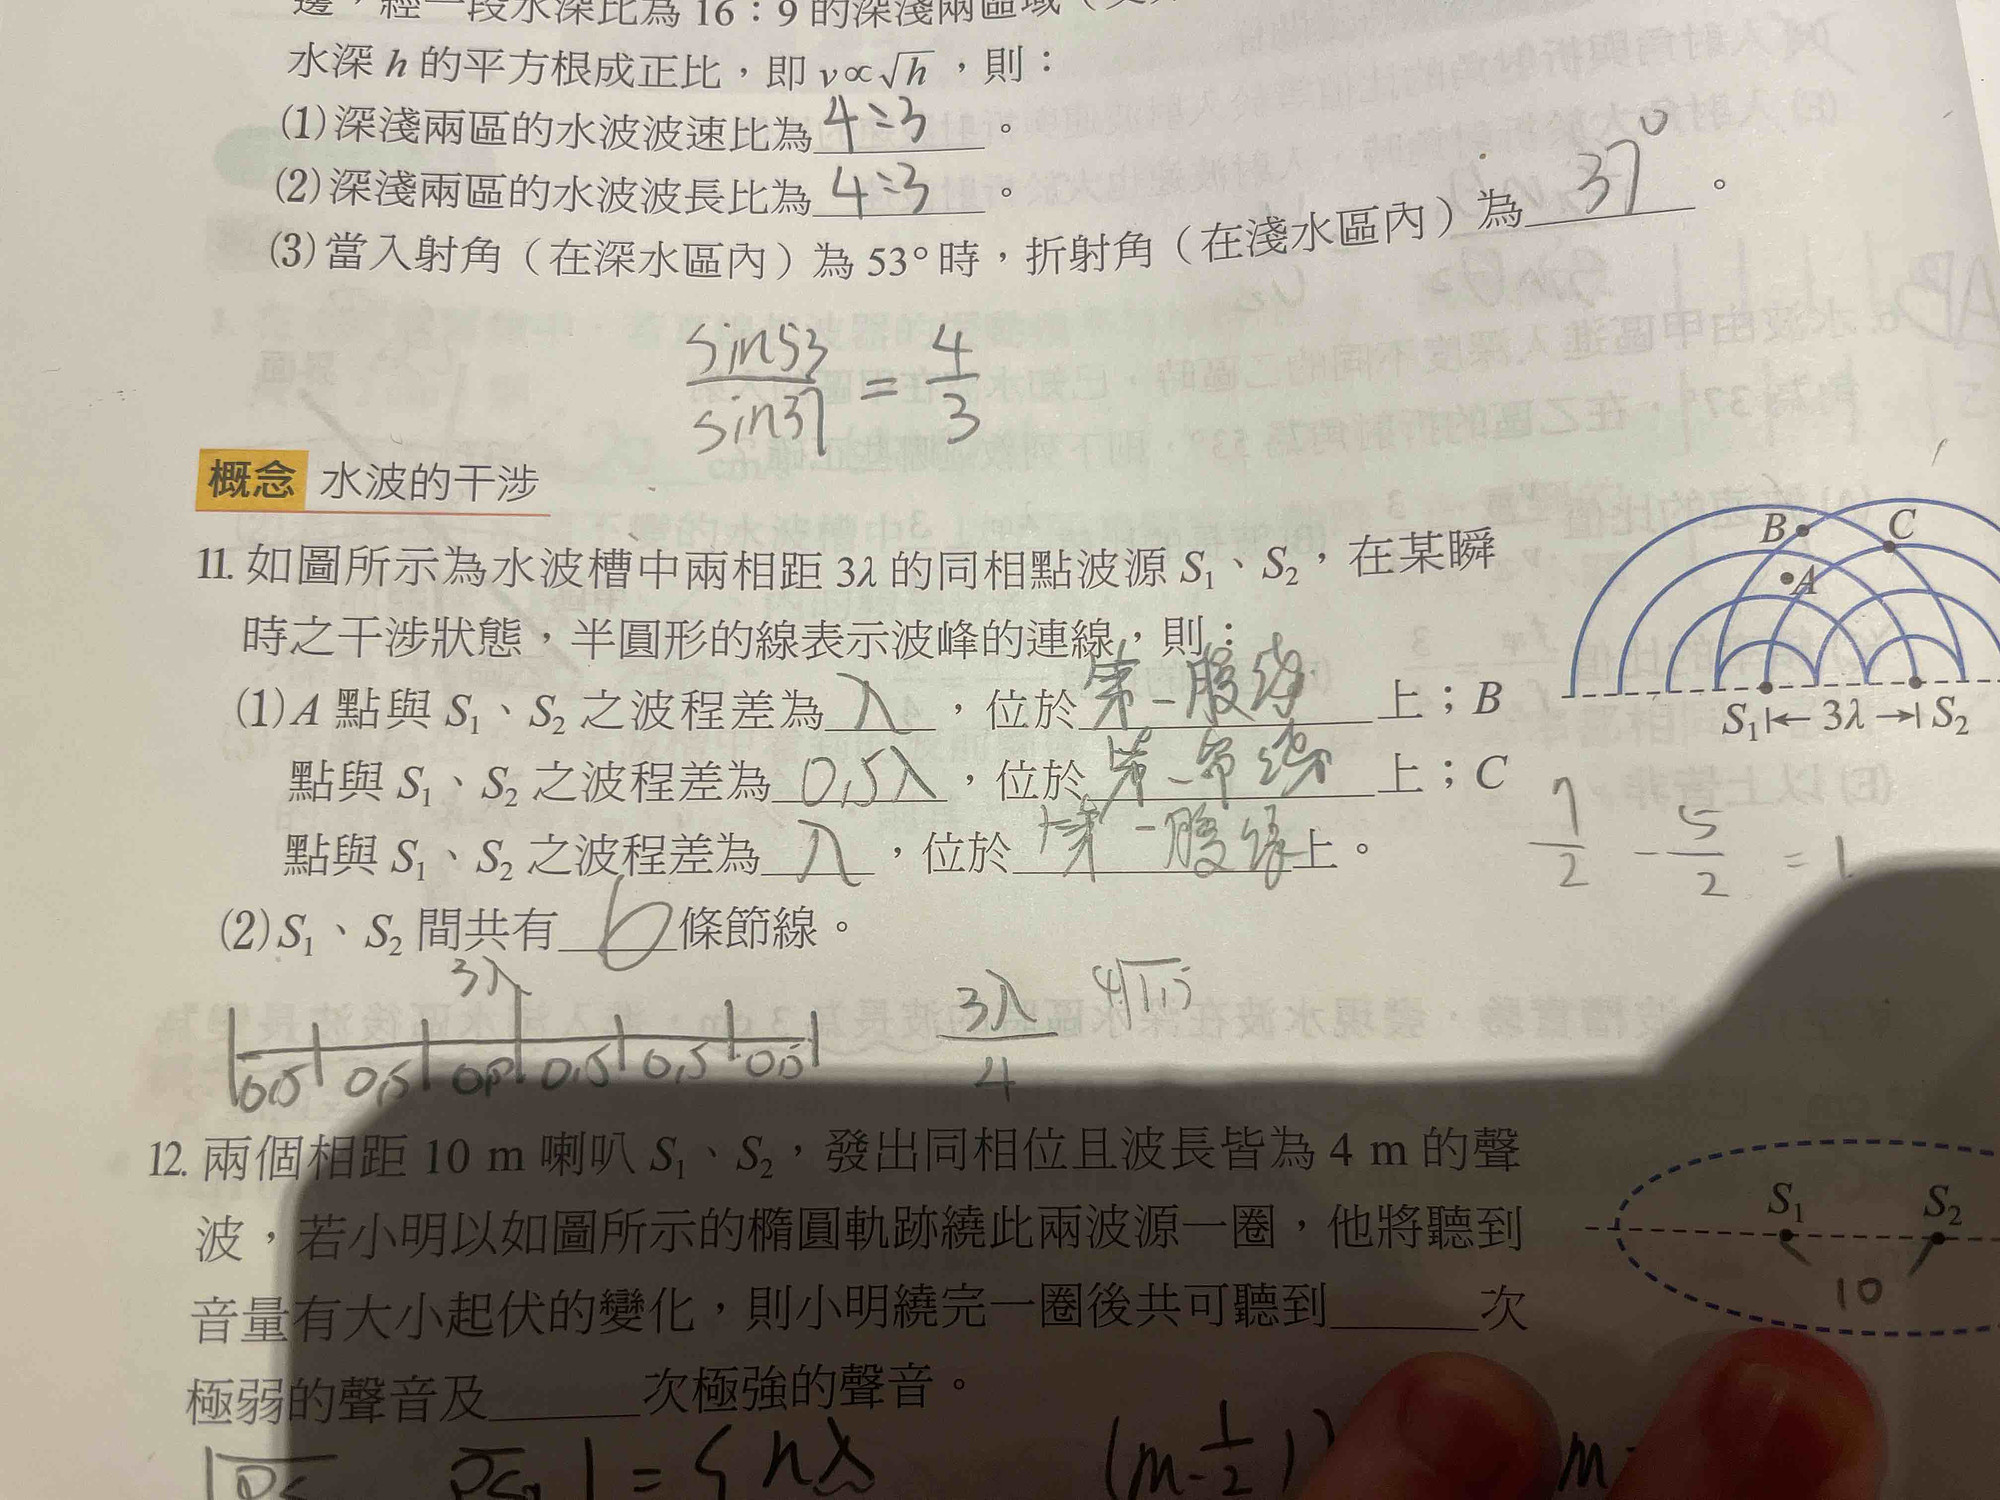 邊，經一段水深比為 16：9 的深淺兩區域（
水深 h 的平方根成正比，即 v∝√h，則：
(1)深淺兩區的水波波速比為 4:3 。
(2)深淺兩區的水波波長比為 4:3 。
(3)當入射角（在深水區內）為 53°時，折射角（在淺水區內）為 37° 。
sin53/sin37 = 4/3
概念 水波的干涉
11. 如圖所示為水波槽中兩相距 3λ 的同相點波源 S₁、S₂，在某瞬
時之干涉狀態，半圓形的線表示波峰的連線，則：
(1)A 點與 S₁、S₂ 之波程差為 λ ，位於 第一腹線 上；B
點與 S₁、S₂ 之波程差為 0.5λ ，位於 第一節線 上；C
點與 S₁、S₂ 之波程差為 λ ，位於 第一腹線 上。
(2)S₁、S₂ 間共有 6 條節線。
B
C
A
S₁ ← 3λ → S₂
7/2 - 5/2 = 1
3λ
0.5 0.5 0.5 0.5 0.5 0.5
3λ/4
12. 兩個相距 10 m 喇叭 S₁、S₂，發出同相位且波長皆為 4 m 的聲
波，若小明以如圖所示的橢圓軌跡繞此兩波源一圈，他將聽到
音量有大小起伏的變化，則小明繞完一圈後共可聽到______次
極弱的聲音及______次極強的聲音。
S₁ S₂
10
= { nλ (m-1/2)